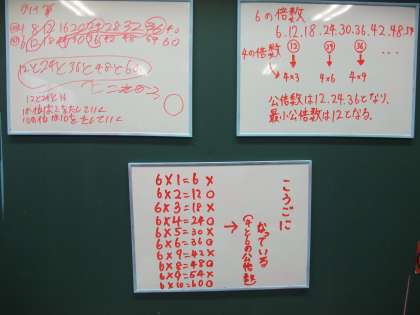 4 8 12 16 20 24 28 32 36 40
6 12 18 24 30 36 42 48 54 60
12と24と36と48と60
12と24と36
6の倍数
6.12.18.24.30.36.42.48.54
4の倍数
12 24 36 …
4×3 4×6 4×9
公倍数は12.24.36となり、
最小公倍数は12となる。
6×1=6 ×
6×2=12 ○
6×3=18 ×
6×4=24 ○
6×5=30 ×
6×6=36 ○
6×9=42 ×
6×8=48 ○
6×9=54 ×
6×10=60 ○
→
こうごに
なっている
(4と6の公倍数)